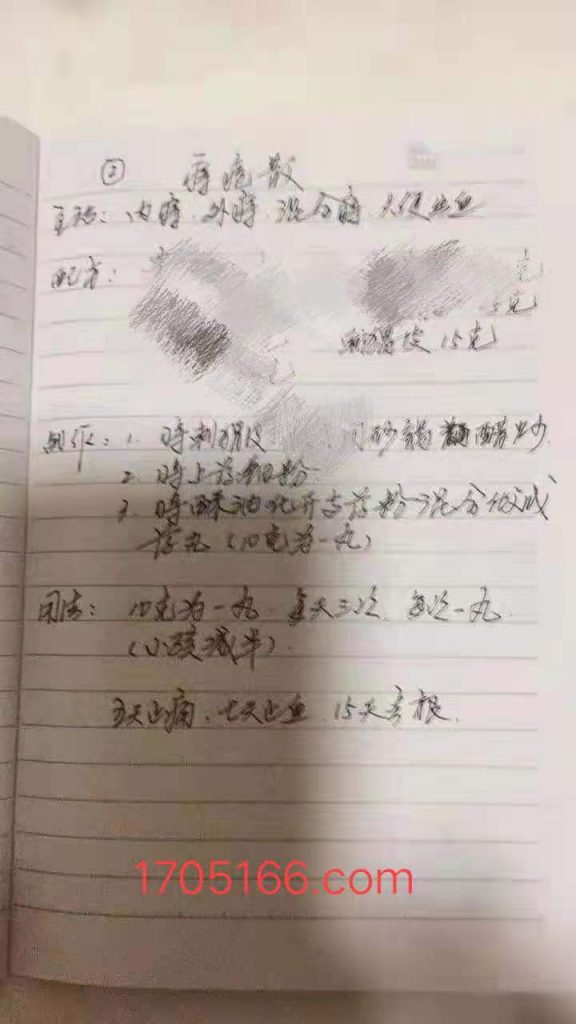 ② 痔疮散
主治：内痔 外痔 混合痔 大便出血
配方：
克
5克
刺猬皮 15克
制作：1. 将刺猬皮 用砂 醋炒
2. 将上药 粉
3. 将酥油化开与药粉混合做成
药丸（10克为一丸）
用法：10克为一丸 每天三次 每次一丸
（小孩减半）
五天止痛、七天止血 15天去根.
1705166.com